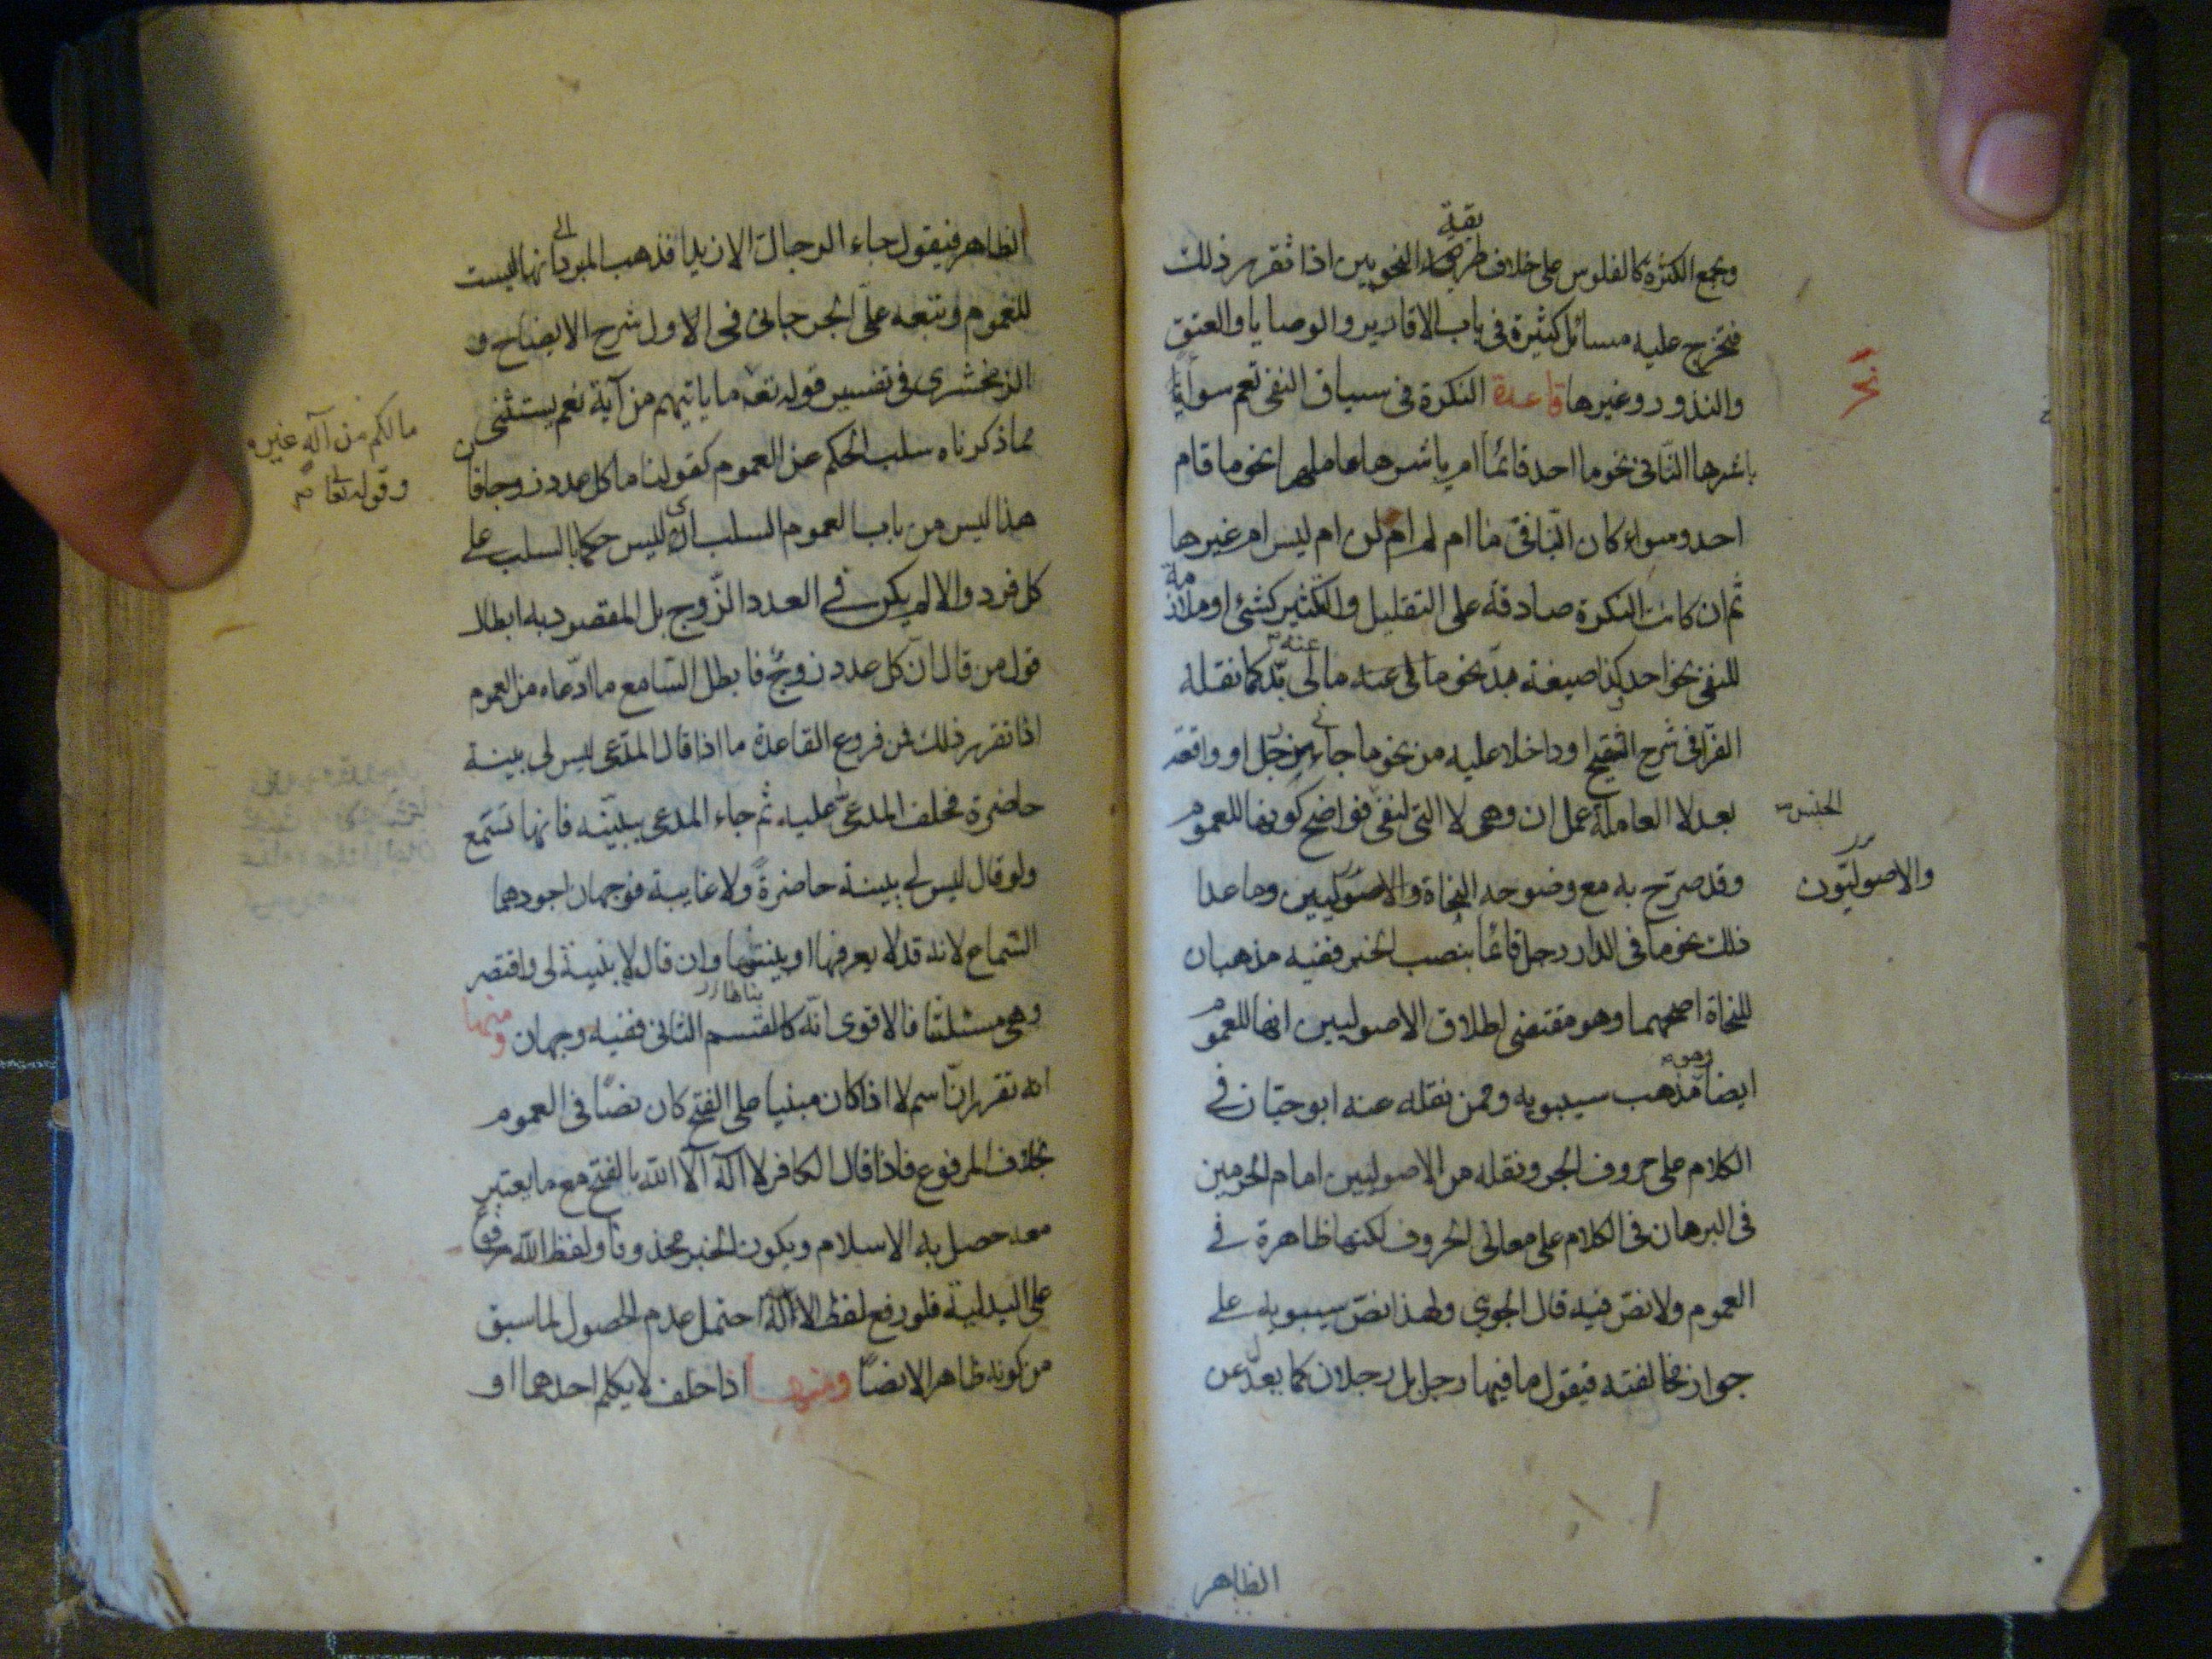 وجمع الكثرة كالفلوس على خلاف طريقة النحويين اذا تقرر ذلك
فتخرج عليه مسائل كثيرة في باب الاقارير والوصايا والعتق
والنذور وغيرها قاعدة النكرة في سياق النفي تعم سواء
باشرها النّافي نحو ما احد قائمًا ام باشرها عاملها نحو ما قام
احد وسواء كان النّافي ما ام لم ام لن ام ليس ام غيرها
ثم ان كانت النكرة صادقة على التقليل والكثير كشئ او ملازمة
للنفي نحو احد كذا صيغة بدّ نحو ما لي عنه بدّ كما نقله
القرافي في شرح التنقيح او داخلا عليه من نحو ما جاءني من رجل او واقعة
بعد لا العاملة عمل ان وهي لا التي لنفي الجنس فواضح كونها للعموم
وقد صرّح به مع وضوحه النحاة والاصوليّون وما عدا
ذلك نحو ما في الدار رجل قائمًا بنصب الخبر ففيه مذهبان
للنحاة اصحهما وهو مقتضى اطلاق الاصوليين انها للعموم
ايضا وهو مذهب سيبويه وممن نقله عنه ابو حيّان في
الكلام على حروف الجر ونقله من الاصوليين امام الحرمين
في البرهان في الكلام على معاني الحروف لكنها ظاهرة في
العموم ولا نصّ فيه قال الجويني ولهذا نصّ سيبويه على
جواز مخالفته فيقول ما فيها رجل بل رجلان كما يعدل عن
الظاهر
الظاهر فيقول جاء الرجال الا زيدا فذهب المبرد الى انها ليست
للعموم وتبعه على الجرجاني في الاول شرح الايضاح و
الزمخشري في تفسير قوله تعه ما لكم من اله غيره وقوله تعا ما ياتيهم من آية نعم يستثنى
مما ذكرناه سلب الحكم عن العموم كقولنا ما كل عدد زوجا فان
هذا ليس من باب العموم السلب اي ليس حكما بالسلب على
كل فرد والا لم يكن في العدد الزّوج بل المقصود به ابطال
قول من قال انّ كل عدد زوج فابطل السّامع ما ادّعاه من العموم
اذا تقرر ذلك فمن فروع القاعدة ما اذا قال المدّعي ليس لي بينة
حاضرة فحلف المدعى عليه ثم جاء المدعي ببينّه فانها تسمع
ولو قال ليس لي بينة حاضرةً ولا غايبة فوجهان اجودهما
السّماع لانه قد لا يعرفها او ينسها وان قال لا بينة لي واقتصر
وهي مسئلتنا فالاقوى انّه كالقسم الثاني ففيه وجهان ومنها
انه تقرر انّ اسم لا اذا كان مبنيا على الفتح كان نصًّا في العموم
بخلاف المرفوع فاذا قال الكافر لا اله الّا الله بالفتح مع ما يعتبر
معه حصل به الاسلام ويكون الخبر محذوفا ولفظ الله مرفوع
على البدلية فلو رفع لفظ الاله احتمل عدم الحصول لما سبق
من كونه ظاهرا لا نصًّا ومنها اذا حلف لا يكلم احدهما او